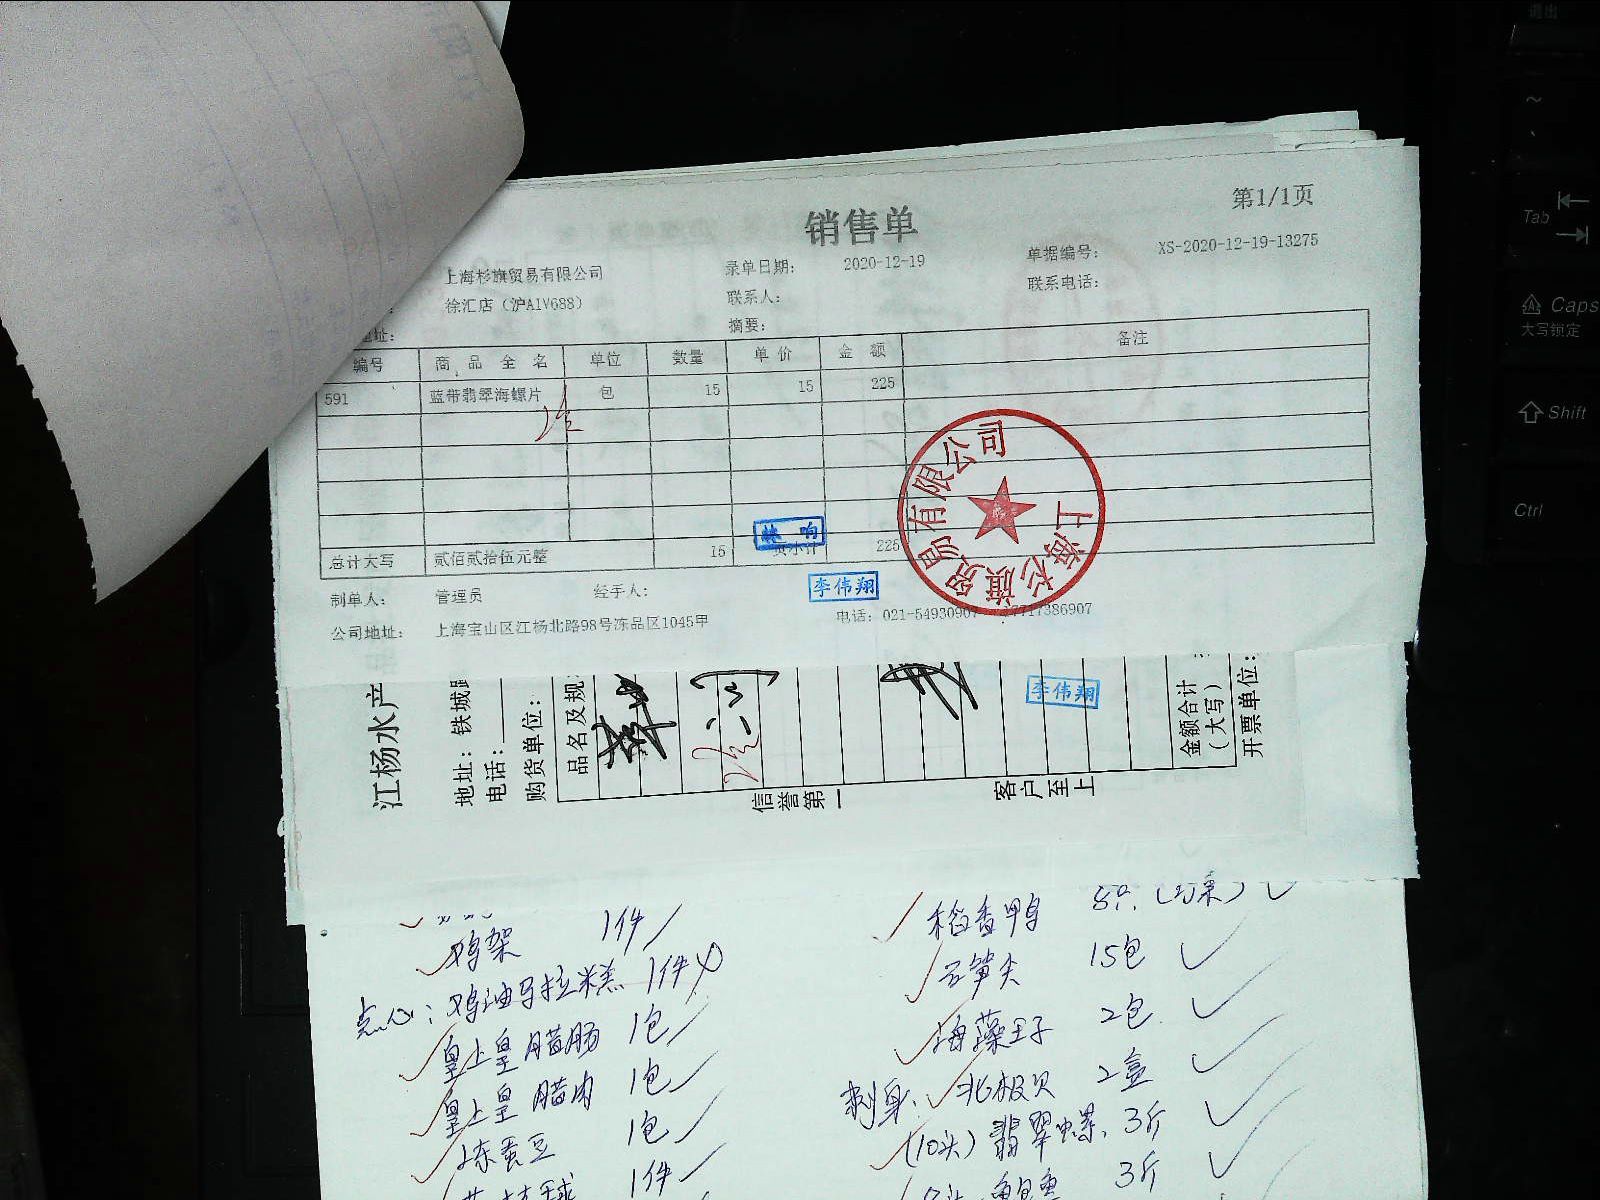 第1/1页
销售单
上海杉旗贸易有限公司 录单日期： 2020-12-19 单据编号： XS-2020-12-19-13275
徐汇店（沪A1V688） 联系人： 联系电话：
址： 摘要：
编号 商品全名 单位 数量 单价 金额 备注
591 蓝带翡翠海螺片 包 15 15 225
总计大写 贰佰贰拾伍元整 15 225
李伟翔
上海杉旗贸易有限公司
制单人： 管理员 经手人：
公司地址： 上海宝山区江杨北路98号冻品区1045甲 电话：021-54930907 17717386907
江杨水产
地址：铁城路
电话：
购货单位：
品名及规
信誉第一
客户至上
李伟翔
金额合计
（大写）
开票单位：
鸡架 1件
点心：鸡油马拉糕 1件
皇上皇腊肠 1包
皇上皇腊肉 1包
冻蚕豆 1包
1件
稻香鸭
笋尖 15包
海藻王子 2包
刺身：北极贝 2盒
（10头）翡翠螺 3斤
鲍鱼 3斤
Tab
Caps
大写锁定
Shift
Ctrl